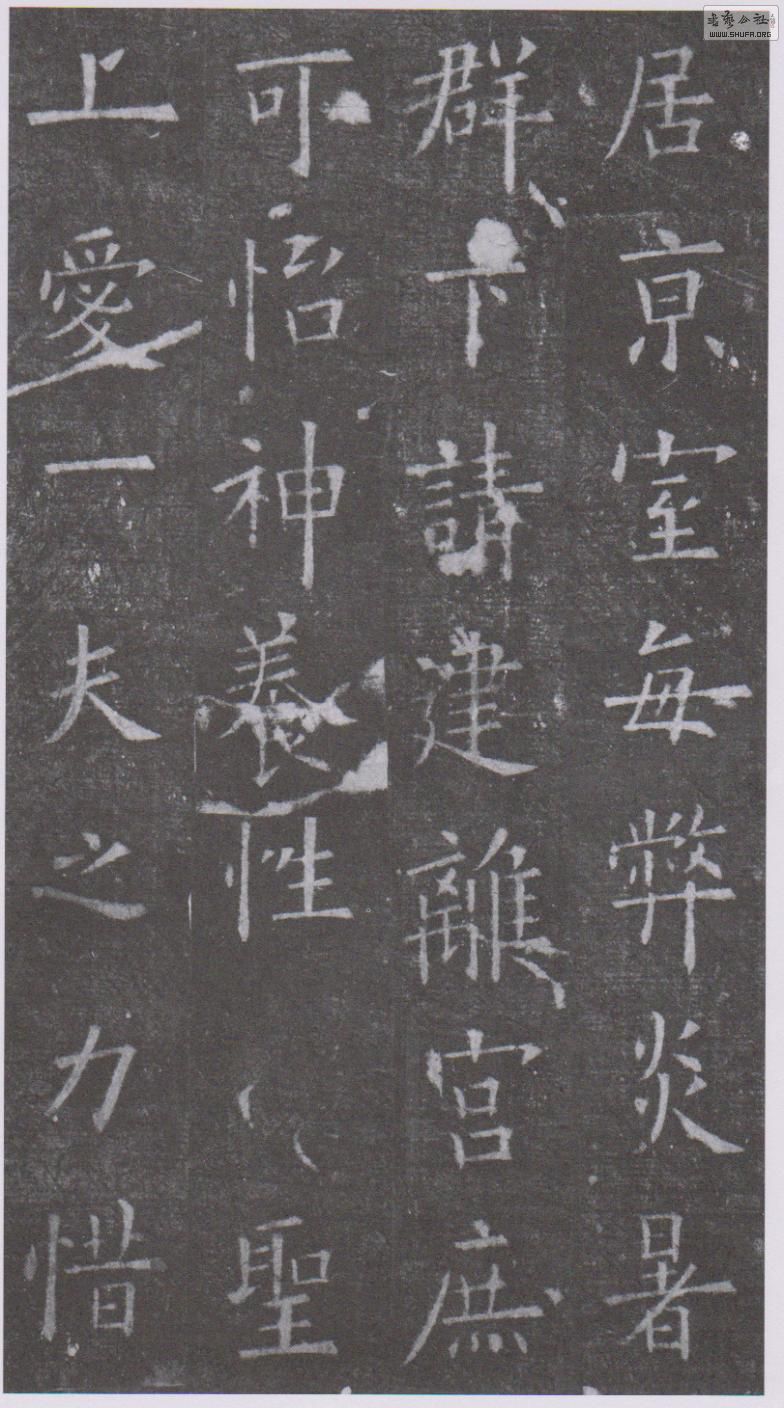 居京室每弊炎暑
群下請建離宮庶
可怡神養性聖
上愛一夫之力惜
WWW.SHUFA.ORG